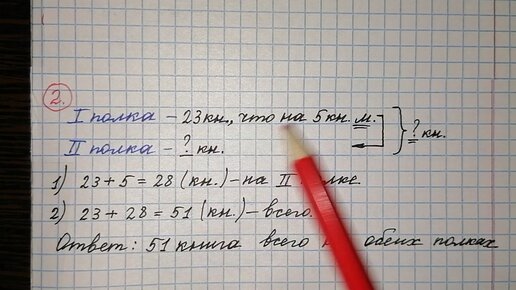 2.
I полка – 23 кн., что на 5 кн. м. } ? кн.
II полка – ? кн.
1) 23 + 5 = 28 (кн.) – на II
2) 23 + 28 = 51 (кн.) – всего.
Ответ: 51 книга всего обеих полках